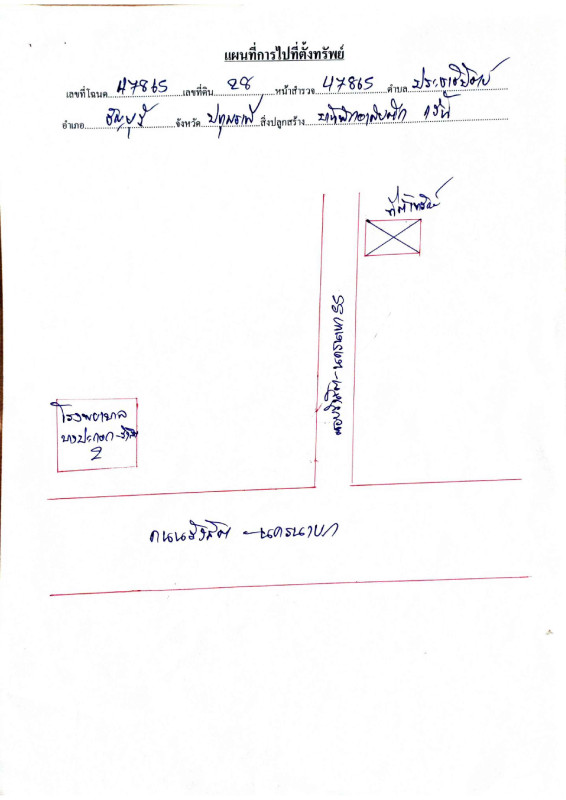 แผนที่การไปที่ตั้งทรัพย์
เลขที่โฉนด 47865 เลขที่ดิน 28 หน้าสำรวจ 47865 ตำบล ประชาธิปัตย์
อำเภอ ธัญบุรี จังหวัด ปทุมธานี สิ่งปลูกสร้าง
ที่ตั้งทรัพย์
ซอยรังสิต-นครนายก 55
โรงพยาบาล
บางปะกอก-รังสิต
2
ถนนรังสิต - นครนายก